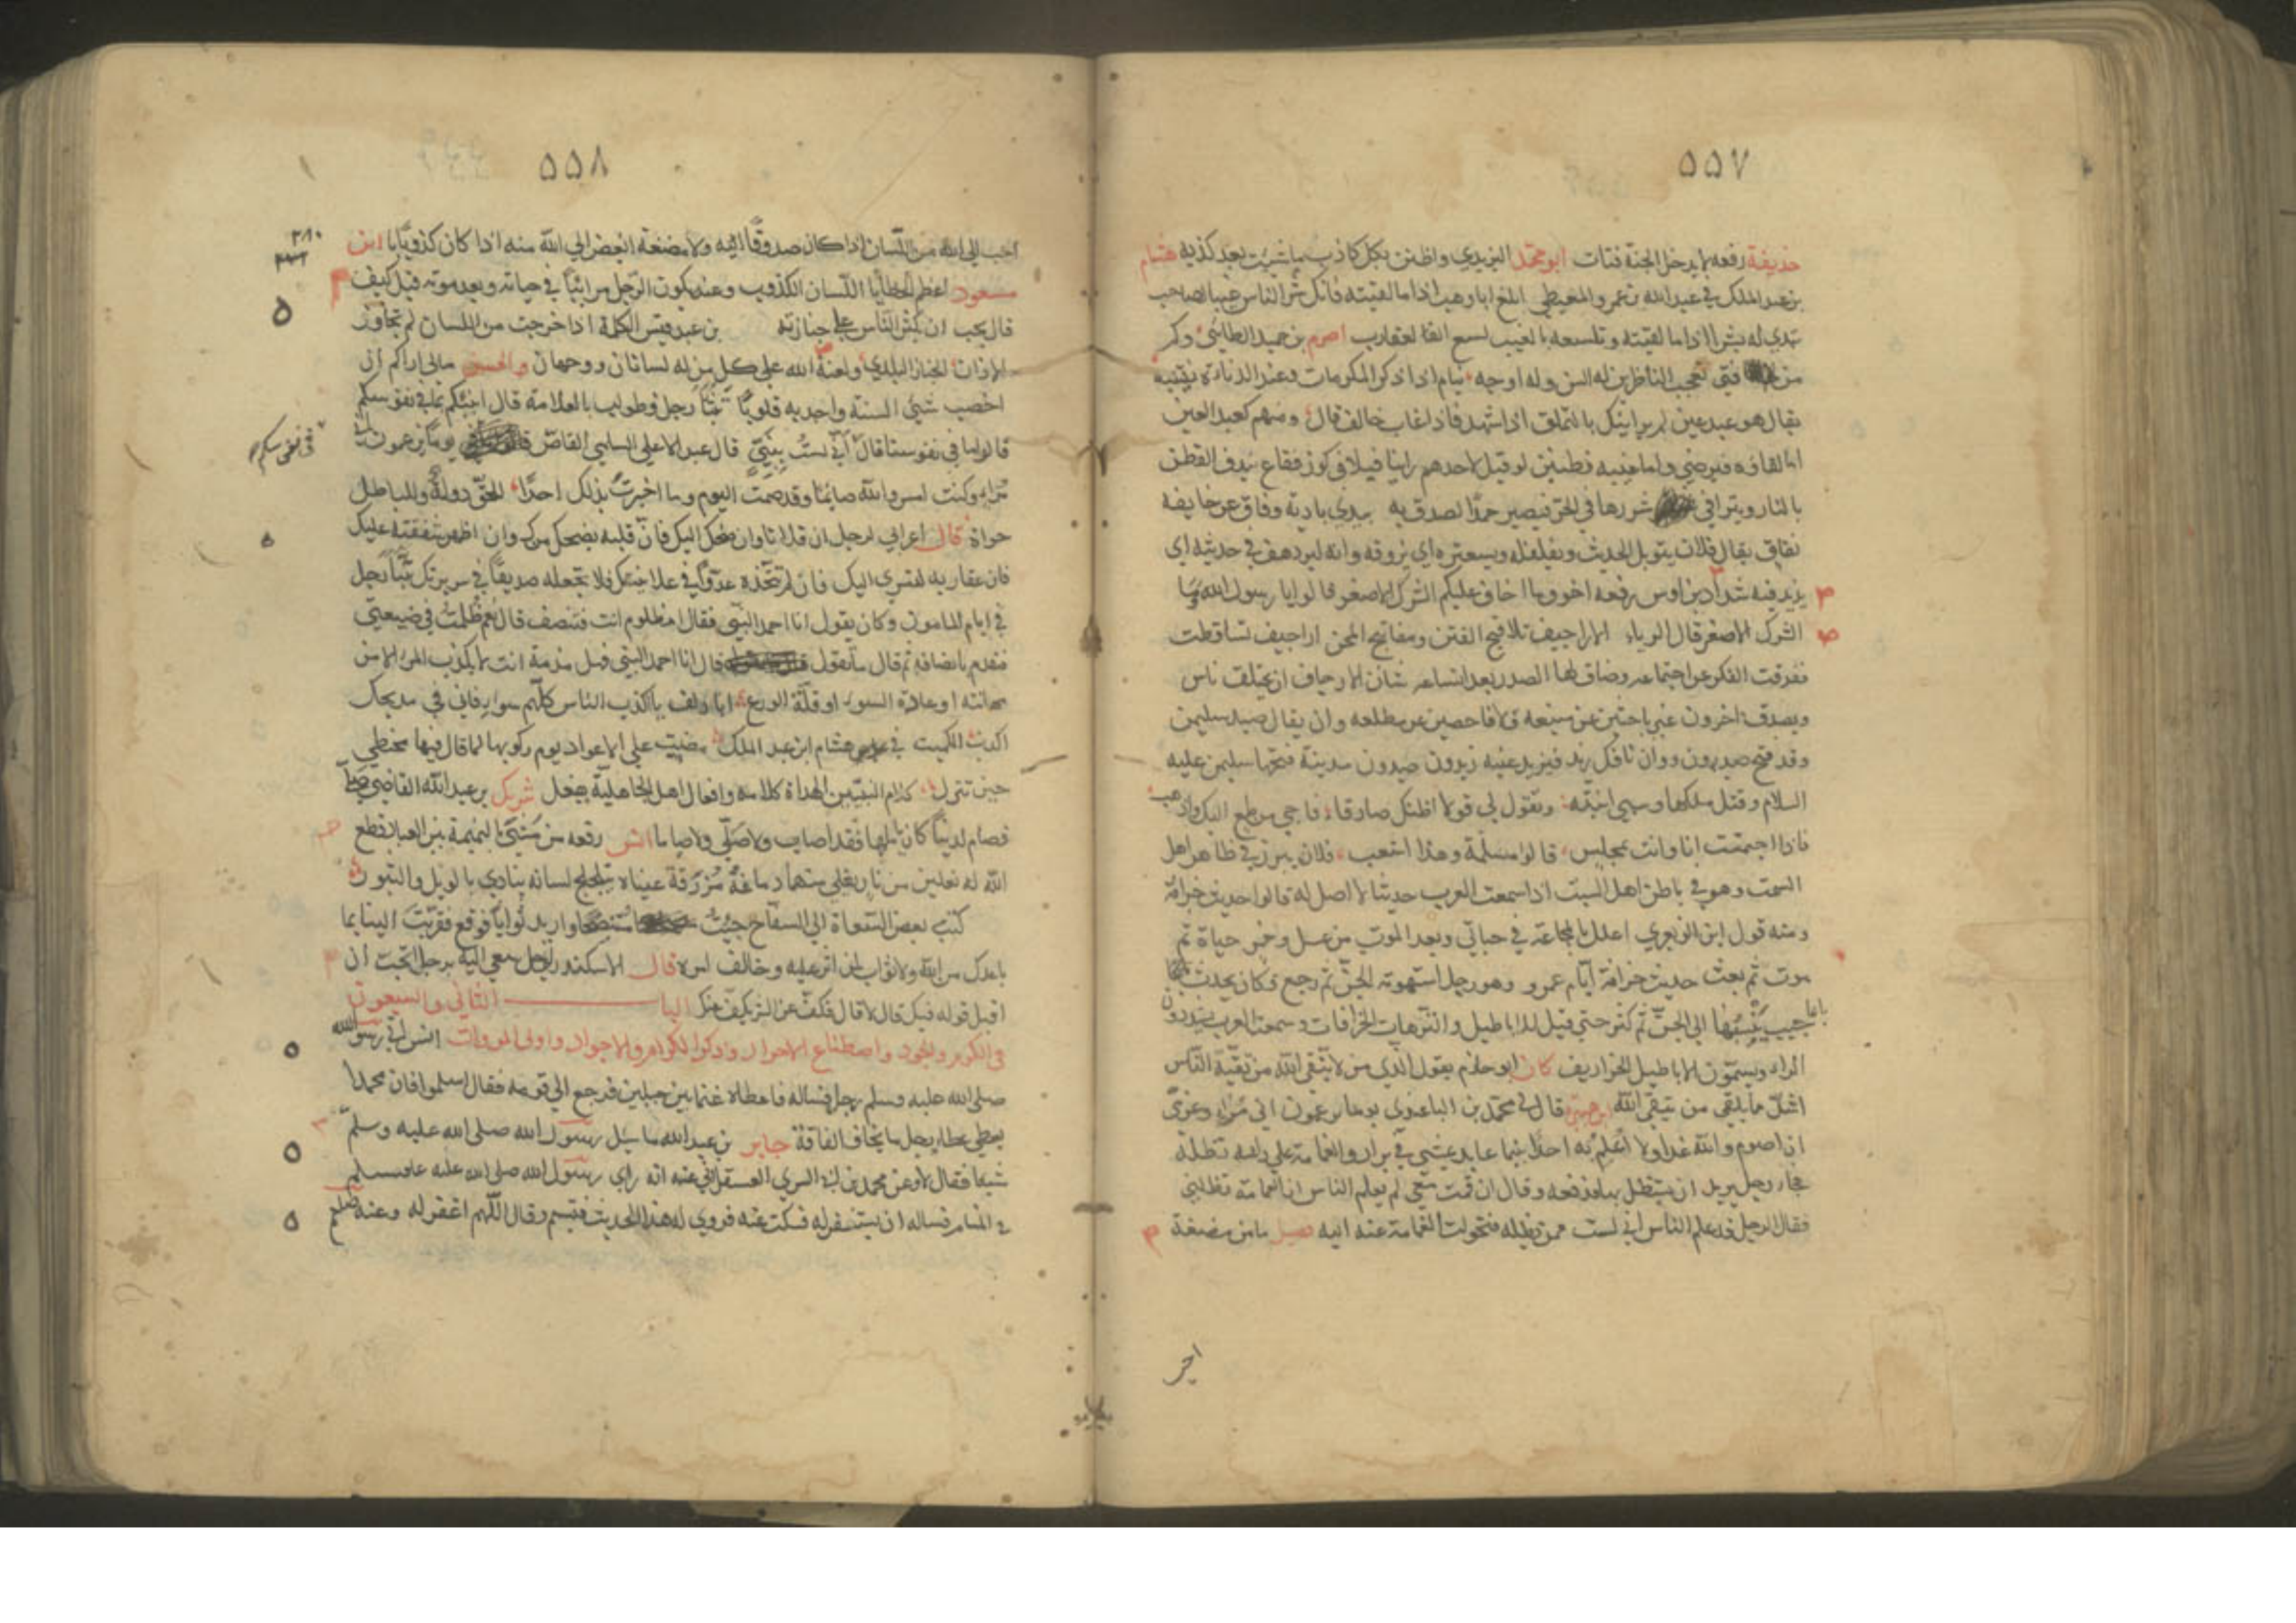 ٥٥٧
حذيفة رفعه لا يدخل الجنة قتات ابو محمد اليزيدي واظنن بكل كاذب ما شيت بعد كذبه هشام
بن عبد الملك في عبد الله بن عمرو المعيطي ابلغ ابا وهب اذا ما لقيته فانك شر الناس عيبا لصاحب
تبدي له بشرا اذا ما لقيته وتلسعه بالغيب لسع العقارب اصرم بن حميد الطائي وكم
من فتى تعجب الناظرين له السن وله اوجه ينام اذا ذكر المكرمات وعند الدناءة يستنبه
يقال هو عبد عين لمن يرائيك بالتملق اذا شهد فاذا غاب خالف قال ومنهم كعبد العين
اما لقاؤه فيرضي واما غيبه فظنين لو قيل لاحدهم راينا فيلا في كوز فقاع يندف القطن
بالنار ويترا في شررها في الحر فيصير حمدا لصدق به يبدي بادية وفاق عن خافية
نفاق يقال فلان يتوبل الحديث ويفلفله ويسعتره اي يزوقه وانه ليزدهف في حديثه اي
يزيد فيه شداد بن اوس رفعه اخوف ما اخاف عليكم الشرك الاصغر قالوا يا رسول الله وما
الشرك الاصغر قال الرياء الاراجيف تلاقيح الفتن ومفاتيح المحن اراجيف تساقطت
ففرقت الفكر عن اجتماعه وضاق لها الصدر بعد اتساعه شان الارجاف ان يختلف ناس
ويصدق اخرون غير باحثين عن منبعه ولا فاحصين عن مطلعه وان يقال صيد سليمن
وقد فتح صيدون ووان نافكل زيد فيزيد عنيه زيدون صيدون مدينة فتحها سليمن عليه
السلام وقتل ملكها وسبى ابنته وتقول لي قولا اظنك صادقا فاجي من طمع اليك واذهب
فاذا اجتمعت انا وانت بمجلس قالوا مسلمة وهذا اشعب فلان يبرز في ظاهر اهل
السمت وهو في باطن اهل السبت اذا سمعت العرب حديثا لا اصل له قالوا حديث خرافة
ومنه قول ابن الزبعري اعلل بالمجاعة في حياتي وبعد الموت من عسل وخمر حياة ثم
موت ثم بعث حديث خرافة ايام عمرو وهو رجل استهوته الجن ثم رجع وكان يحدث
باعاجيب ينسبها الى الجن ثم كثر حتى قيل للاباطيل والترهات الخرافات وسمعت العرب يشددون
الراء ويسمون الاباطيل الخراريف كان ابو حازم يقول الذي من لا يتقي الله من تقية الناس
اشد ما يلقى من يتقي الله قال لي محمد بن الباغندي يوما يزعمون اني مراء وعزي
ان اصوم والله غدا ولا اعلم به احدا بينما عابد يمشي في براز والغمامة على راسه تظله
فجاء رجل يريد ان يستظل بها فدفعه وقال ان قمت معي لم يعلم الناس ان الغمامة تظلني
فقال الرجل قد علم الناس اني لست ممن تظله فتحولت الغمامة عنه اليه فضيل ما من مضغة
احب
٥٥٨
احب الى الله من اللسان اذا كان صدوقا ولا مضغة ابغض الى الله منه اذا كان كذوبا ابن
مسعود اعظم الخطايا اللسان الكذوب وعنه يكون الرجل مرائيا في حياته وبعد موته قيل كيف
قال يحب ان يكثر الناس على جنازته بن عبد قيس الكلمة اذا خرجت من اللسان لم تجاوز
الاذان الخباز البلدي ولعنة الله على كل من له لسانان ووجهان والحسن مالي اراكم ارى
اخصب شيء السنة واجدبه قلوبا تنبأ رجل فطولب بالعلامة قال انبئكم بما في نفوسكم
قالوا ما في نفوسنا قال اني لست بنبي قال عبد الاعلى السلمي القاص يوما يزعمون اني
مراء وكنت امس والله صائما وقد صمت اليوم وما اخبرت بذلك احدا للحق دولة وللباطل
جولة قال اعرابي لرجل ان فلانا وان ضحك اليك فان قلبه يضحك منك وان اظهر شفقته عليك
فان عقاربه لتسري اليك فان لم تتخذه عدوا في علانيتك فلا تجعله صديقا في سريرتك تنبأ رجل
في ايام المامون وكان يقول انا احمد النبي فقال امظلوم انت فتنصف قال نعم ظلمت في ضيعتي
فتقدم بانصافه ثم قال ما تقول قال انا احمد النبي فهل مذمة انت لا يكذب المرء الا من
مهانته او عادة السوء او قلة الورع ابا دلف يا اكذب الناس كلهم سواي فاني في مديحك
اكذب الكميت في هشام ابن عبد الملك مضيت على الاعواد يوم ركوبها لما قال فيها مخطي
حين تنزل كلام النبيين الهداة كلامه وافعال اهل الجاهلية يفعل شريك بن عبد الله القاضي صلى
فصام لدنيا كان ياملها فقد اصاب ولا صلى ولا صاما انس رفعه من مشى بالنميمة بين العباد قطع
الله له نعلين من نار يغلي منها دماغه مزرقة عيناه متلجلج لسانه ينادي بالويل والثبور
كتب بعض السعاة الى السفاح جئت متنصحا واريد ثوابا فوقع تقربت الينا بما
باعدك من الله ولا ثواب لمن اثر عليه وخالف امره قال الاسكندر لرجل سعى اليه برجل اتحب ان
اقبل قوله فيك قال لا قال فكف عن الشر يكف عنك الباب الثاني والسبعون
في الكرم والجود واصطناع الاحرار وذكر الكرام والاجواد واولى المروات انس اتى رسول الله
صلى الله عليه وسلم رجل فساله فاعطاه غنما بين جبلين فرجع الى قومه فقال اسلموا فان محمدا
يعطي عطاء رجل ما يخاف الفاقة جابر بن عبد الله ما سئل رسول الله صلى الله عليه وسلم
شيئا فقال لا وعن محمد بن السري العسقلاني عنه انه راى رسول الله صلى الله عليه وسلم
في المنام فساله ان يستغفر له فسكت عنه فروي له هذا الحديث فتبسم وقال اللهم اغفر له وعنه صلعم
في نفوسكم